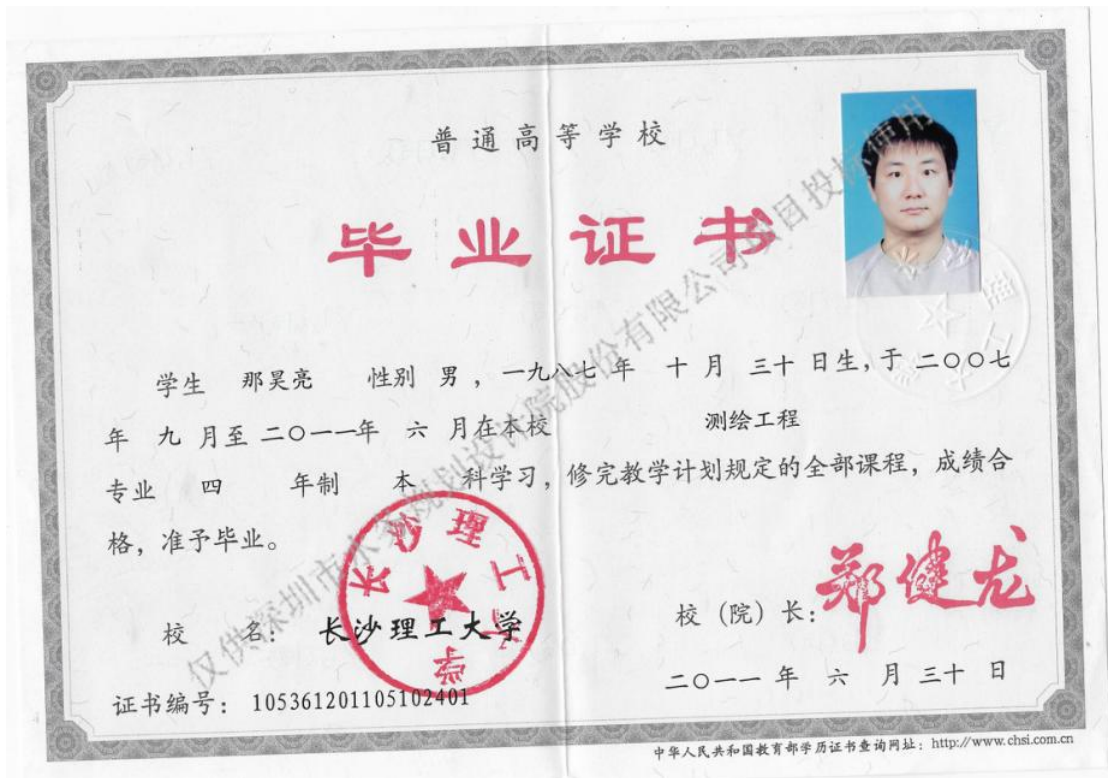 普通高等学校
毕业证书
学生 那昊亮 性别 男，一九八七 年 十 月 三十 日生，于 二〇〇七
年 九 月至 二〇一一年 六 月在本校 测绘工程
专业 四 年制 本 科学习，修完教学计划规定的全部课程，成绩合
格，准予毕业。
校 名： 长沙理工大学
校（院）长： 郑健龙
二〇一一 年 六 月 三十 日
证书编号： 105361201105102401
中华人民共和国教育部学历证书查询网址：http://www.chsi.com.cn
长沙理工大学
仅供深圳市水务规划设计院股份有限公司项目投标使用